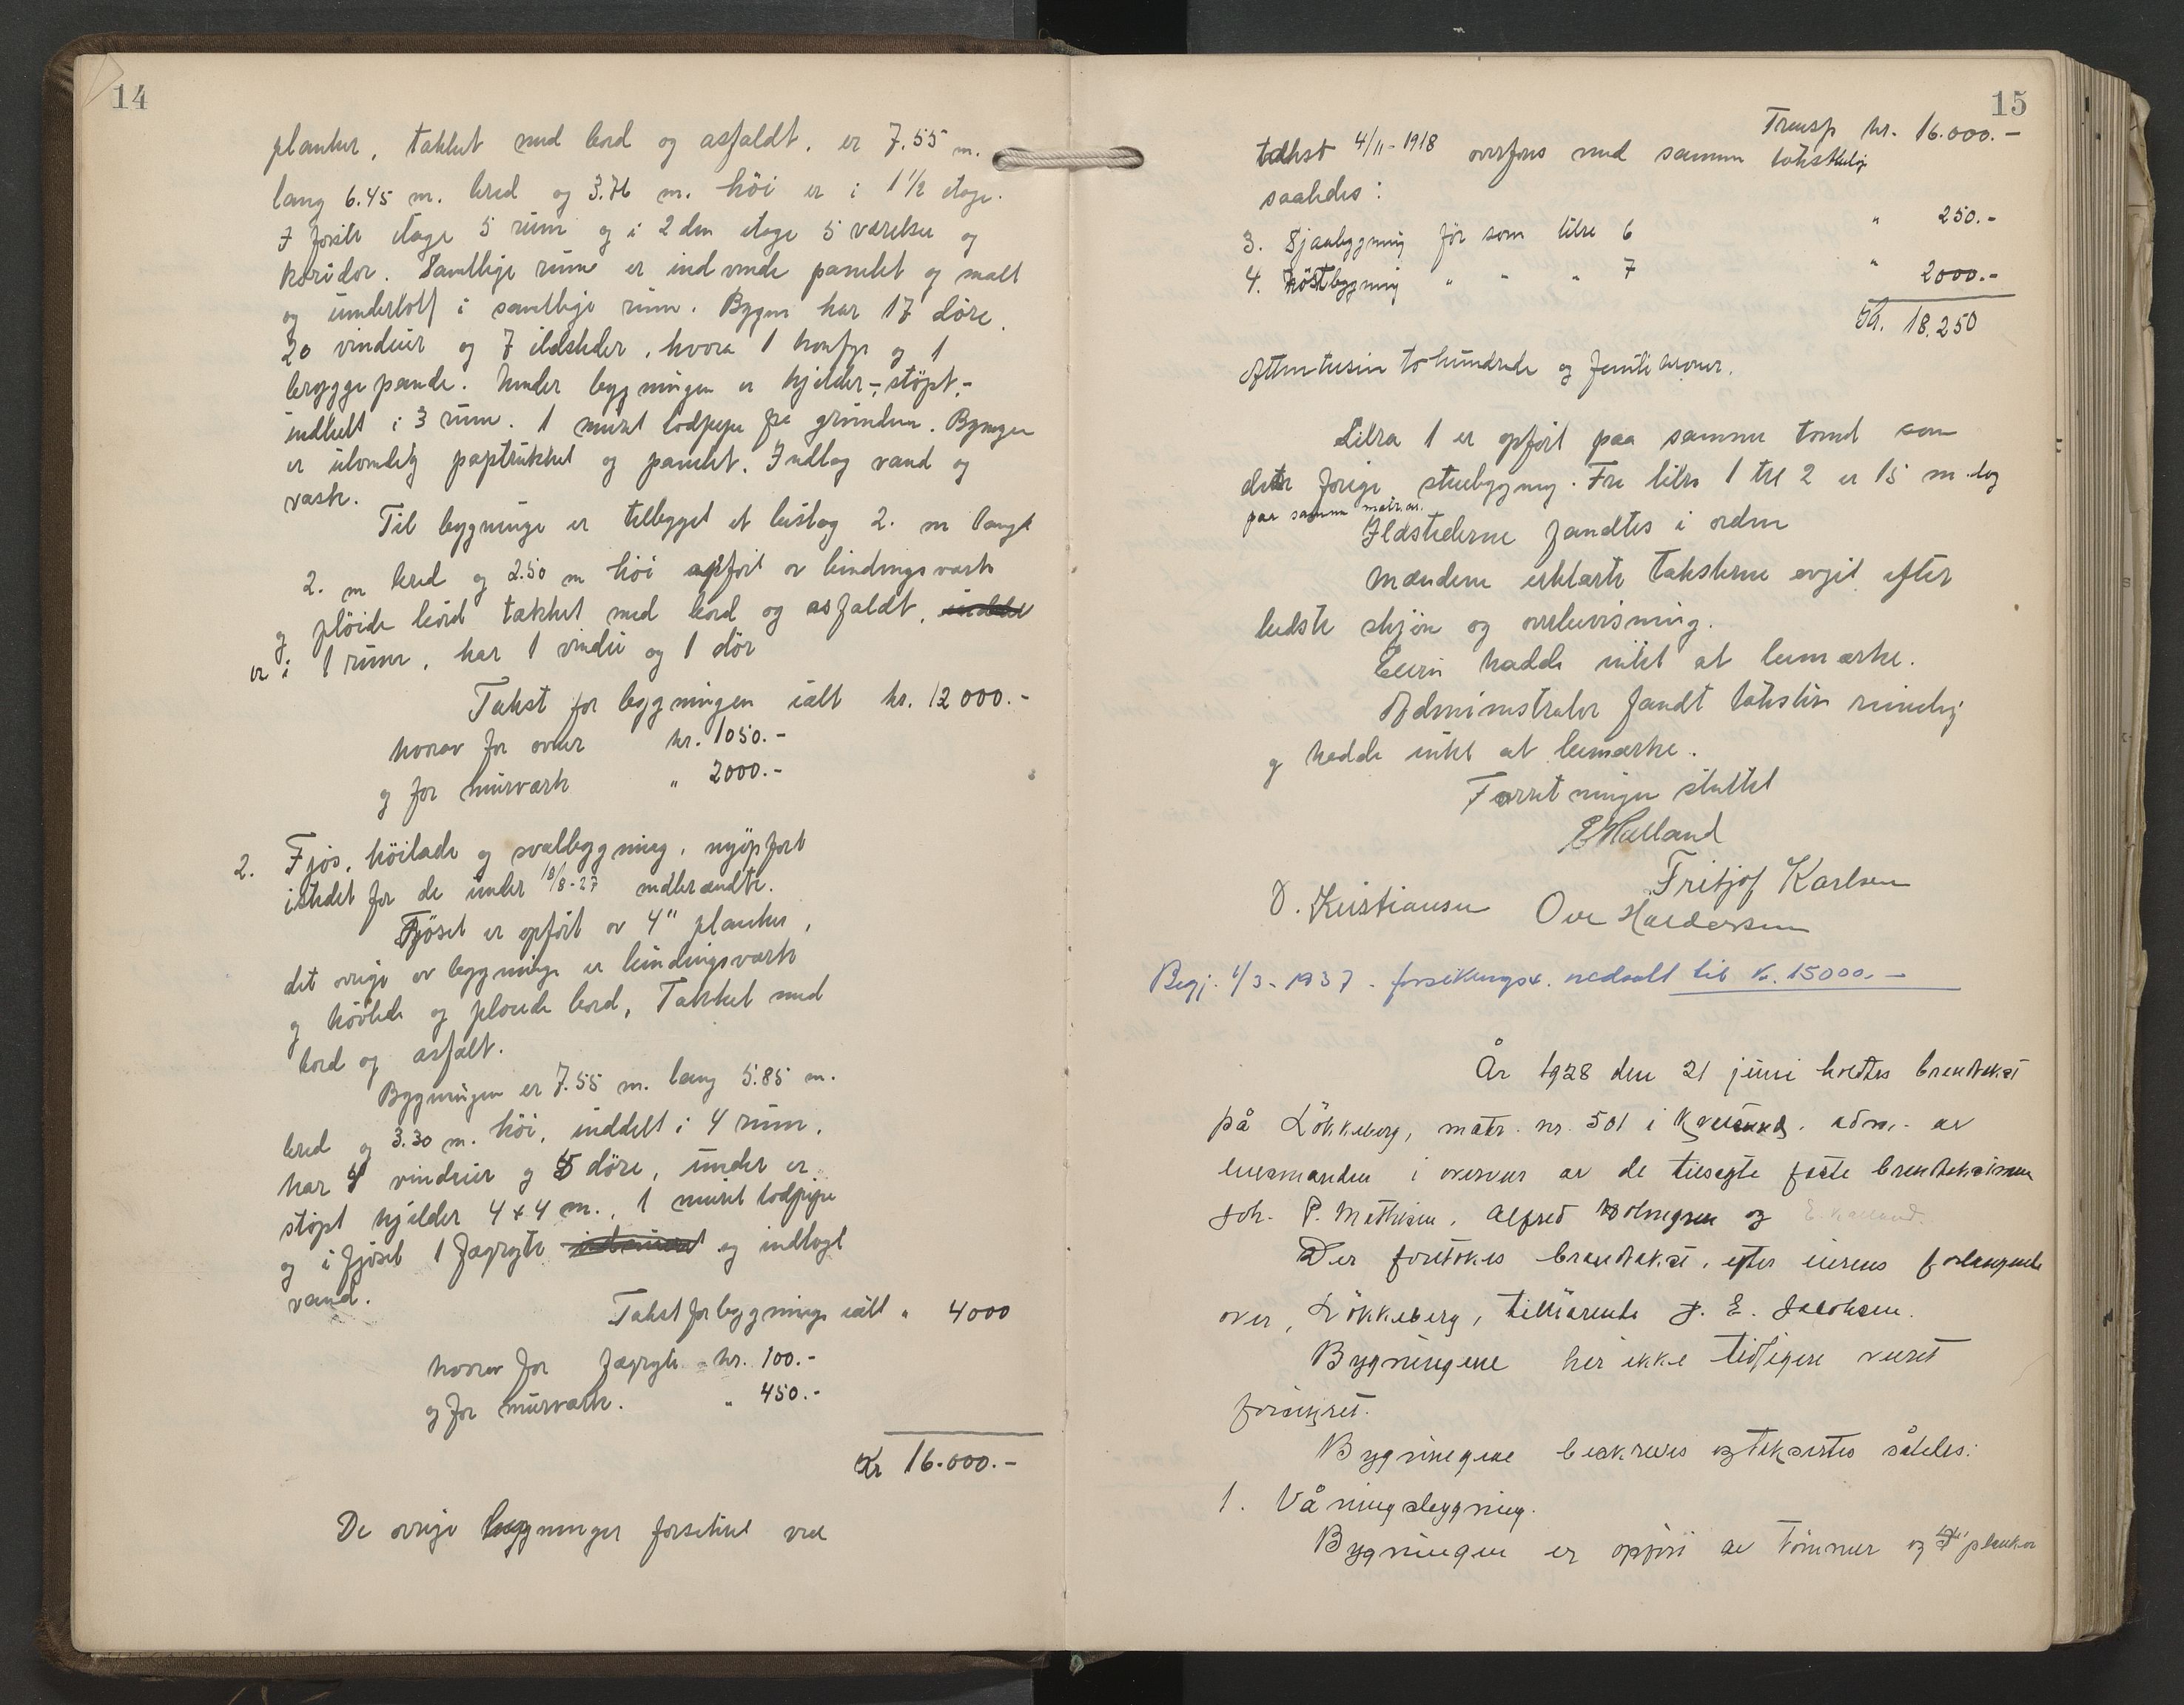 14
planker, tækket med bord og asfaldt, er 7.55 m.
lang 6.45 m. bred og 3.76 m. höi er i 1 1/2 etage.
I förste etage 5 rum og i 2den etage 5 værelser og
koridor. Samtlige rum er indvendi panelet og malt
og underloft i samtlige rum. Bygn har 17 döre,
20 vinduer og 7 ildsteder, hvorav 1 komfyr og 1
bryggepande. Under bygningen er kjelder - stöpt -
inddelt i 3 rum. 1 muret lodpipe fra grunden. Bygngen
er utvendig paptrukket og panelet. Indlag vand og
vask.
Til bygningen er tilbygget et bislag 2. m langt
2. m bred og 2.50 m höi opfört av bindingsverk
og plöide bord tækket med bord og asfaldt,
er i 1 rum, har 1 vindu og 1 dör
Takst for bygningen ialt kr. 12 000.-
hvorav for ovner kr. 1050.-
og for murværk " 2000.-
2. Fjös, höilade og svalbygning, nyopfört
istedet for de under 18/8-27 nedbrændte.
Fjöset er opfört av 4" planker,
det övrige av bygningen er bindingsværk
og hövlede og plöiede bord, Tækket med
bord og asfalt.
Bygningen er 7.55 m. lang 5.85 m.
bred og 3.30 m. höi, inddelt i 4 rum,
har 4 vinduer og 5 döre, under er
stöpt kjelder 4 x 4 m., 1 muret lodpipe
og i fjöset 1 fægryte og indlagt
vand.
Takst for bygningen ialt " 4000
hvorav for fægryte kr. 100.-
og for murværk. " 450.-
Kr 16.000.-
De övrige bygninger forsikret ved
15
Transp kr. 16.000.-
takst 4/11-1918 overföres med samme takstbelöp
saaledes:
3. Sjaabygning för som litra 6 " 250.-
4. Höstbygning " " " 7 " 2000.-
Kr. 18.250
Attentusin tohundrede og femti kroner.
Litra 1 er opfört paa samme tomt som
den forrige stuebygning. Fra litra 1 til 2 er 15 m. dog
paa samme matr.nr.
Ildstederne fandtes i orden
Mændene erklærte taksterne avgit efter
bedste skjön og overbevisning.
Eieren hadde intet at bemærke.
Administrator fandt taksten rimelig
og hadde intet at bemærke.
Forretningen sluttet
E Halland
Fritjof Karlsen
D. Kristiansen Ove Haldorsen
Begj. 1/3-1937 - forsikringss. nedsatt til Kr. 15000.-
År 1928 den 21 juni holdtes brandtakst
på Lökkeberg, matr. nr. 501 i adm. av
lensmanden i overvær av de tilsagte faste brandtakstmenn
Joh. P. Mathisen, Alfred Holmgren og E. Halland.
Der foretokes brandtakst, efter eierens forlangende
over, Lökkeberg, tilhörende J. E. Jacobsen.
Bygningene her ikke tidligere været
forsikret.
Bygningene beskrives og takseres således:
1. Våningsbygning.
Bygningen er opfört av tömmer og 4" planker